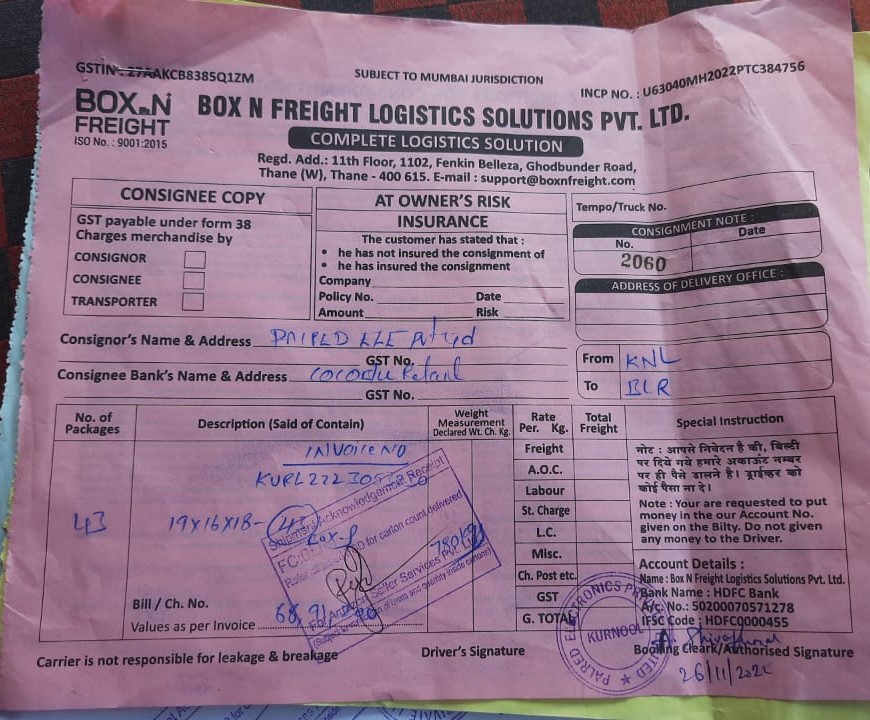 GSTIN : 27AAKCB8385Q1ZM
SUBJECT TO MUMBAI JURISDICTION
INCP NO. : U63040MH2022PTC384756
BOX N
FREIGHT
ISO No. : 9001:2015
BOX N FREIGHT LOGISTICS SOLUTIONS PVT. LTD.
COMPLETE LOGISTICS SOLUTION
Regd. Add.: 11th Floor, 1102, Fenkin Belleza, Ghodbunder Road,
Thane (W), Thane - 400 615. E-mail : support@boxnfreight.com
CONSIGNEE COPY
GST payable under form 38
Charges merchandise by
CONSIGNOR
CONSIGNEE
TRANSPORTER
AT OWNER'S RISK
INSURANCE
The customer has stated that :
• he has not insured the consignment of
• he has insured the consignment
Company
Policy No. Date
Amount Risk
Tempo/Truck No.
CONSIGNMENT NOTE :
No. Date
2060
ADDRESS OF DELIVERY OFFICE :
Consignor's Name & Address
GST No.
Consignee Bank's Name & Address Cocodu Retail
GST No.
From KNL
To BLR
No. of Packages
Description (Said of Contain)
Weight Measurement Declared Wt. Ch. Kg.
Rate Per. Kg.
Total Freight
Special Instruction
INVOICE NO
43
19X16X18-
780kg
Bill / Ch. No.
Values as per Invoice
Freight
A.O.C.
Labour
St. Charge
L.C.
Misc.
Ch. Post etc.
GST
G. TOTAL
नोट : आपसे निवेदन है की, बिल्टी
पर दिये गये हमारे अकाऊंट नम्बर
पर ही पैसे डालने है। ड्राईवर को
कोई पैसा ना दे।
Note : Your are requested to put
money in the our Account No.
given on the Bilty. Do not given
any money to the Driver.
Account Details :
Name : Box N Freight Logistics Solutions Pvt. Ltd.
Bank Name : HDFC Bank
A/c. No.: 50200070571278
IFSC Code : HDFC0000455
Shipment Acknowledgement Receipt
for carton count delivered
Services Pvt. Ltd
PALRED ELECTRONICS
KURNOOL
Carrier is not responsible for leakage & breakage
Driver's Signature
Booking Cleark/Authorised Signature